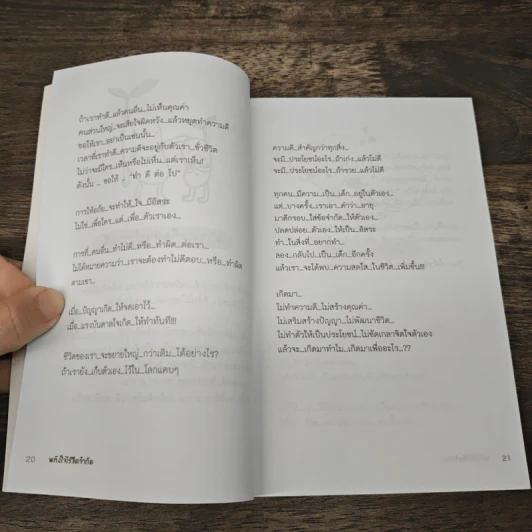 ถ้าเราทำดี...แล้วคนอื่น...ไม่เห็นคุณค่า
คนส่วนใหญ่...จะเสียใจผิดหวัง...แล้วหยุดทำความดี
ขอให้เรา...อย่าเป็นเช่นนั้น...
เวลาที่เราทำดี...ความดีจะอยู่กับตัวเรา...ชั่วชีวิต
ไม่ว่าจะมีใคร...เห็นหรือไม่เห็น...แต่เราเห็น!
ดังนั้น ... ขอให้ ... "ทำ ดี ต่อ ไป"
การให้อภัย...จะทำให้...ใจ...มีอิสระ
ไม่ใช่...เพื่อใคร...แต่...เพื่อ...ตัวเราเอง...
การที่...คนอื่น...ทำไม่ดี...หรือ...ทำผิด...ต่อเรา...
ไม่ได้หมายความว่า...เราจะต้องทำไม่ดีตอบ...หรือ...ทำผิด
ตามเขา...
เมื่อ...ปัญญาเกิด...ให้จดเอาไว้...
เมื่อ...แรงบันดาลใจเกิด...ให้ทำทันที!!!
ชีวิตของเรา...จะขยายใหญ่...กว่าเดิม...ได้อย่างไร?
ถ้าเรายัง...เก็บตัวเอง...ไว้ใน...โลกแคบๆ
20 พลังใจไร้ขีดจำกัด
ความดี...สำคัญกว่าทุกสิ่ง...
จะมี...ประโยชน์อะไร...ถ้าเก่ง...แล้วไม่ดี
จะมี...ประโยชน์อะไร...ถ้ารวย...แล้วไม่ดี
ทุกคน...มีความ...เป็น...เด็ก...อยู่ในตัวเอง...
แต่...บางครั้ง...เราเอา...คำว่า...อายุ
มาตีกรอบ...ใส่ข้อจำกัด...ให้ตัวเอง...
ปลดปล่อย...ตัวเอง...ให้เป็น...อิสระ
ทำ...ในสิ่งที่...อยากทำ...
ลอง...กลับไป...เป็น...เด็ก...อีกครั้ง
แล้วเรา...จะได้พบ...ความสดใส...ในชีวิต...เพิ่มขึ้น!!!
เกิดมา...
ไม่ทำความดี...ไม่สร้างคุณค่า...
ไม่เสริมสร้างปัญญา...ไม่พัฒนาชีวิต...
ไม่ทำตัวให้เป็นประโยชน์...ไม่ขัดเกลาจิตใจตัวเอง
แล้วจะ...เกิดมาทำไม...เกิดมาเพื่ออะไร...??
21